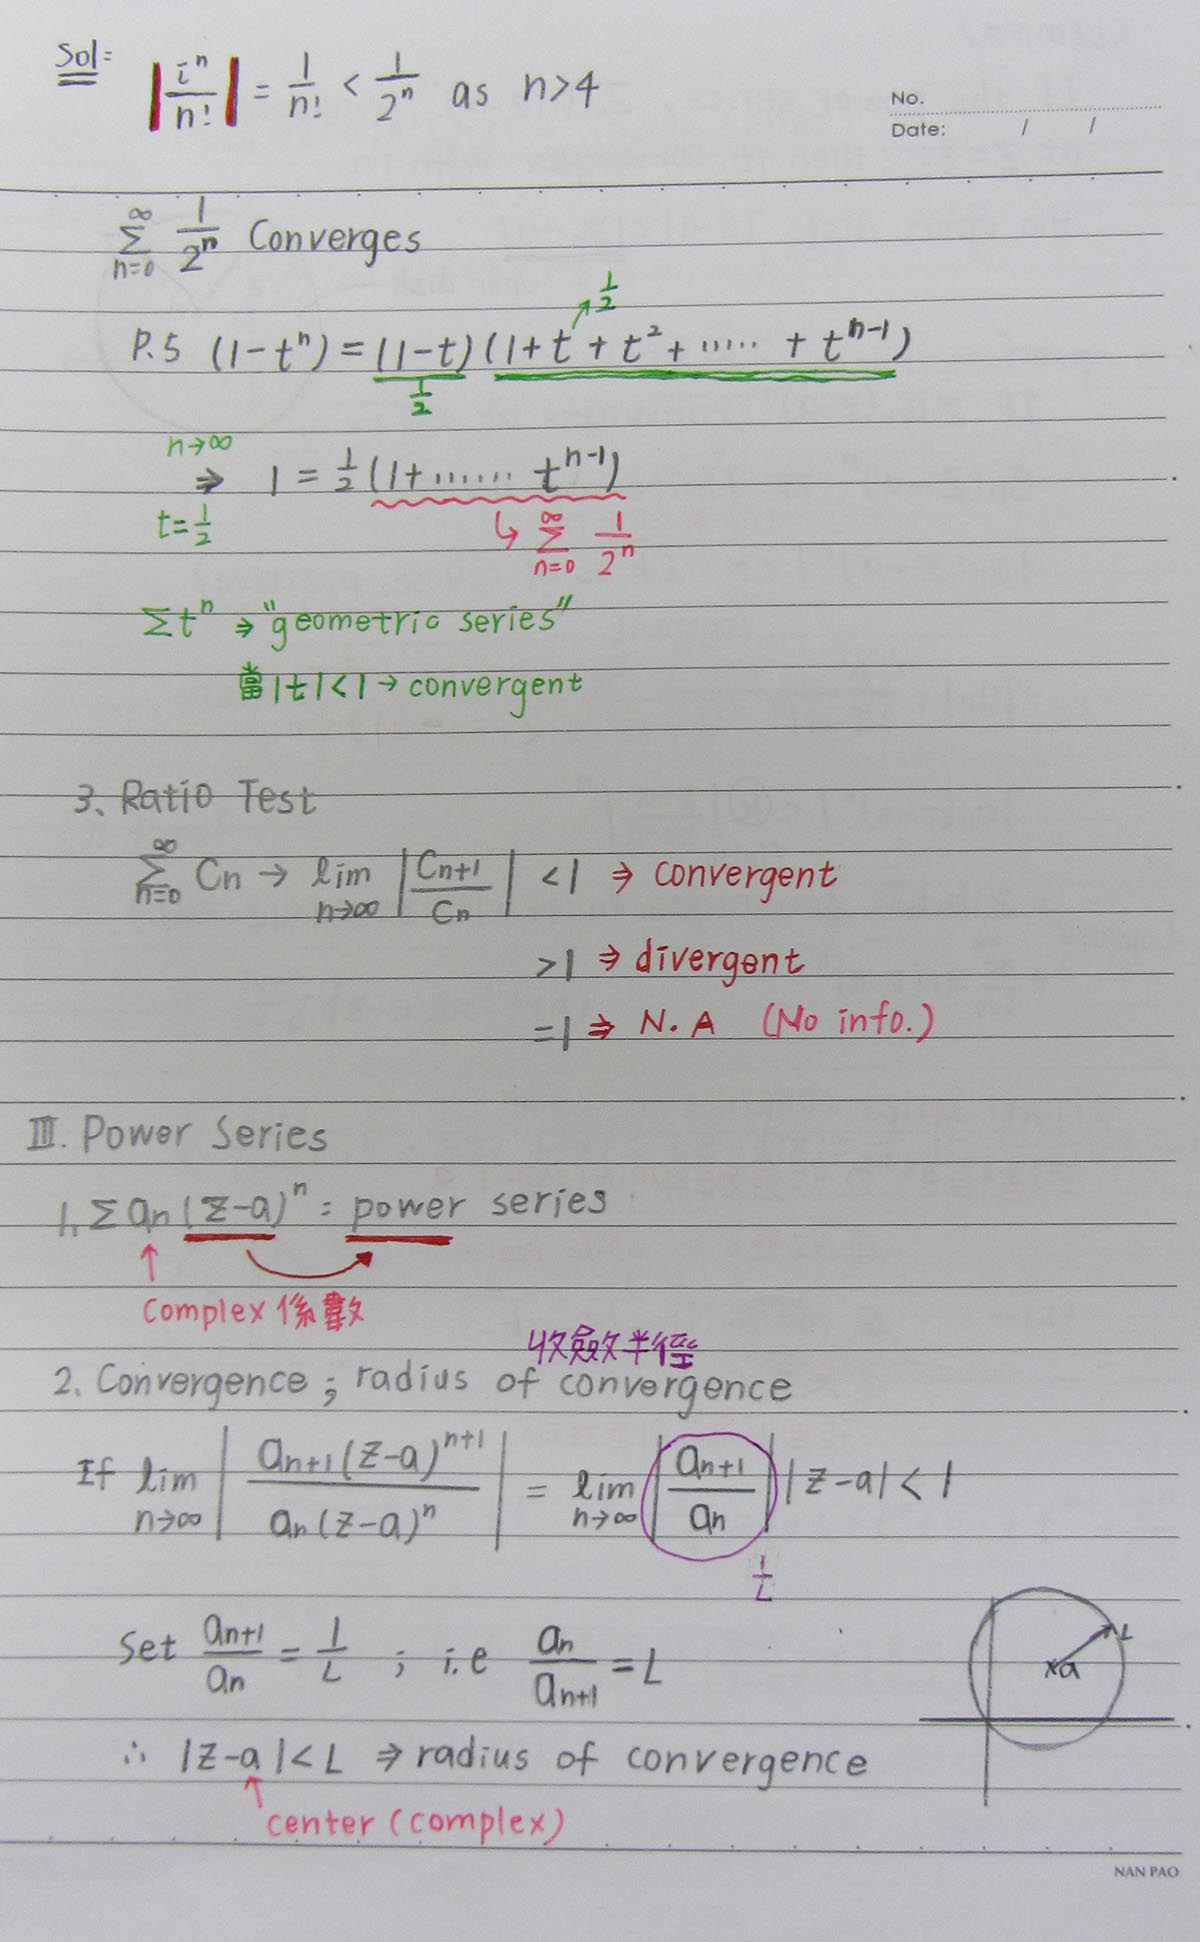 Sol: |iⁿ/n!| = 1/n! < 1/2ⁿ as n>4
No.
Date: / /
∞Σn=0 1/2ⁿ Converges
1/2
P.5 (1-tⁿ) = (1-t)(1+t+t²+······+tⁿ⁻¹)
1/2
n→∞
⇒ 1 = 1/2(1+······ tⁿ⁻¹)
t=1/2
↳ ∞Σn=0 1/2ⁿ
Σtⁿ ⇒ "geometric series"
當|t|<1 → convergent
3、Ratio Test
∞Σn=0 Cn → lim n→∞ |Cn+1/Cn| <1 ⇒ convergent
>1 ⇒ divergent
=1 ⇒ N.A (No info.)
III. Power Series
1. Σ an(z-a)ⁿ = power series
↑
Complex 係數
收斂半徑
2. Convergence ; radius of convergence
If lim n→∞ |an+1(z-a)ⁿ⁺¹/an(z-a)ⁿ| = lim n→∞ |an+1/an||z-a|<1
1/L
Set an+1/an = 1/L ; i.e an/an+1 = L
L
×a
∴ |z-a|<L ⇒ radius of convergence
↑
center (complex)
NAN PAO